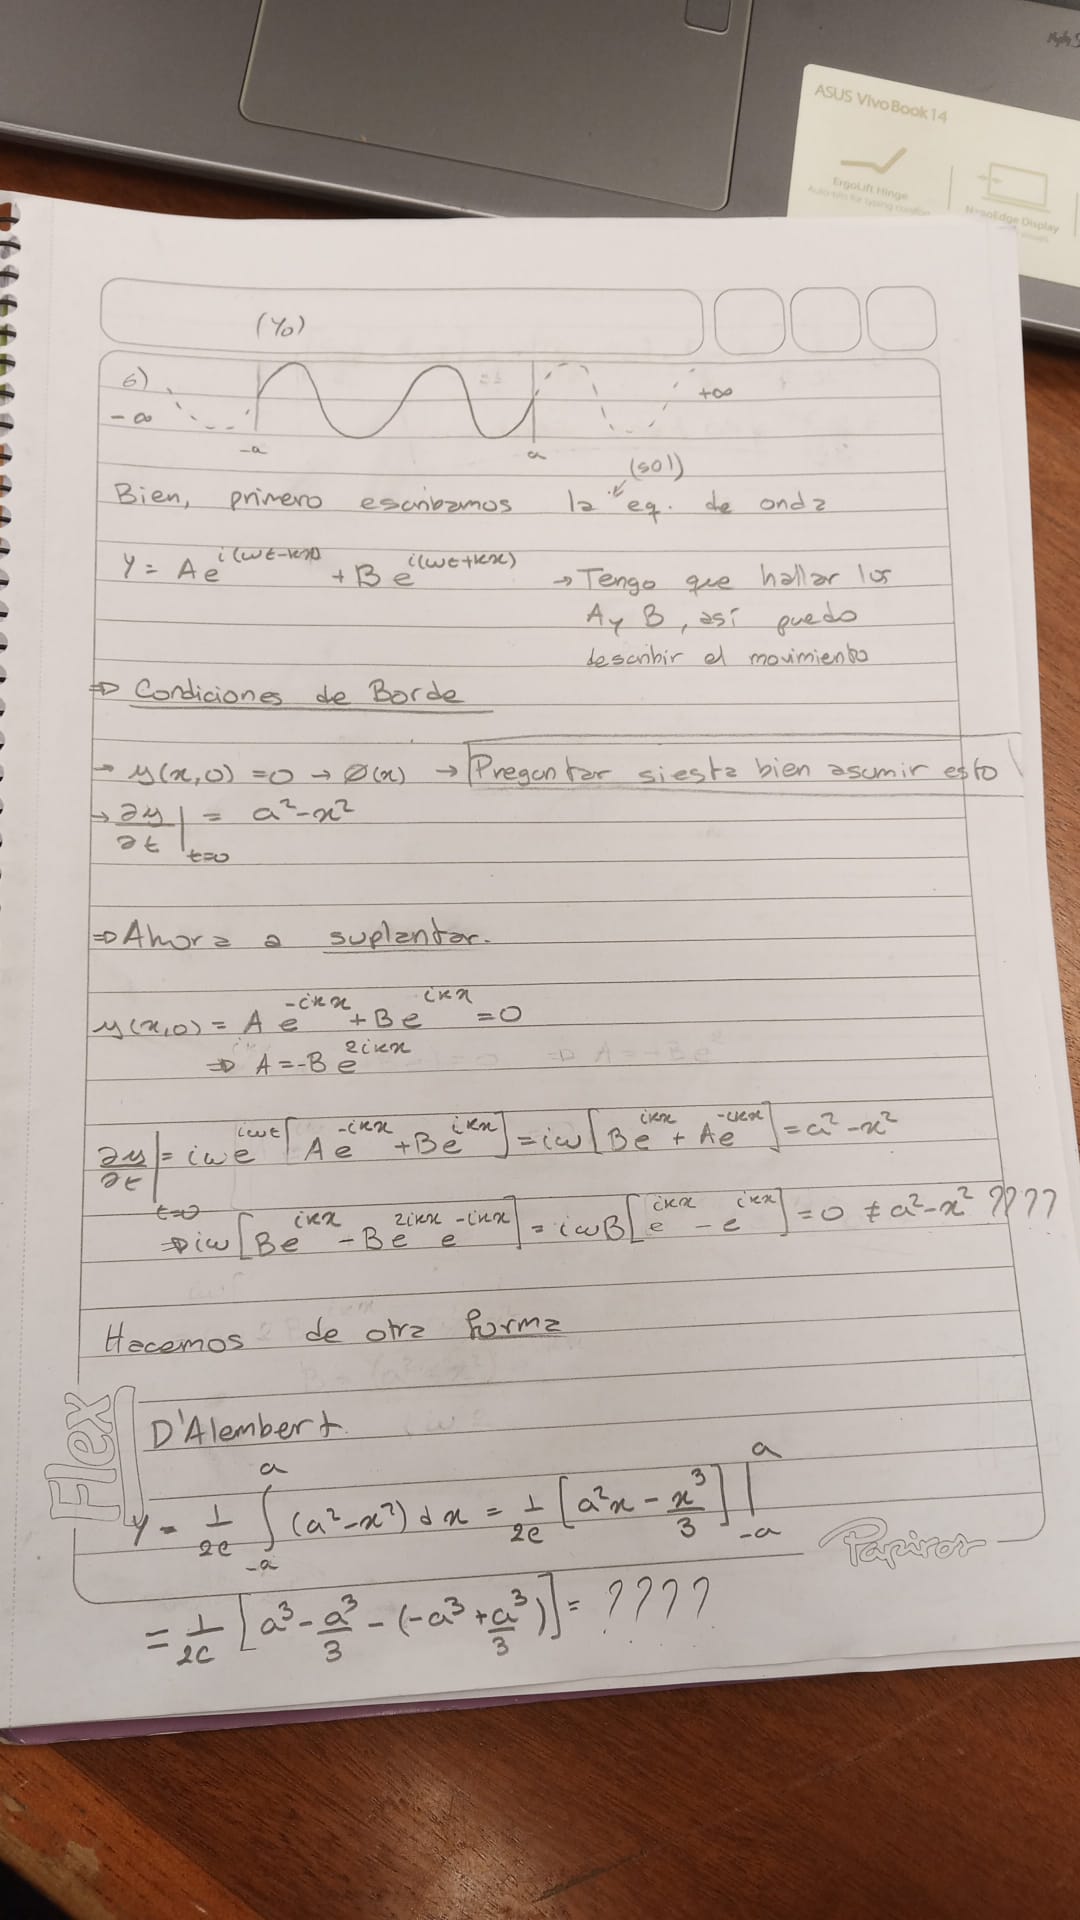 ASUS VivoBook14
ErgoLift Hinge
NanoEdge Display
(y₀)
6)
-∞
+∞
-a
a
(sol)
Bien, primero escribamos la eq. de onda
Y = A e^{i(ωt-kx)} + B e^{i(ωt+kx)} → Tengo que hallar los
A y B, así puedo
describir el movimiento
⇒ Condiciones de Borde
→ y(x,0) = 0 → Ø(x) → Preguntar si esta bien asumir esto
→ ∂y/∂t |_{t=0} = a² - x²
⇒ Ahora a suplantar.
y(x,0) = A e^{-ikx} + B e^{ikx} = 0
⇒ A = -B e^{2ikx}
∂y/∂t |_{t=0} = iω e^{iωt} [A e^{-ikx} + B e^{ikx}] = iω [B e^{ikx} + A e^{-ikx}] = a² - x²
⇒ iω [B e^{ikx} - B e^{2ikx} e^{-ikx}] = iωB [e^{ikx} - e^{ikx}] = 0 ≠ a² - x² ????
Hacemos de otra forma
D'Alembert
Y = 1/2c ∫_{-a}^{a} (a² - x²) dx = 1/2c [a²x - x³/3] |_{-a}^{a}
= 1/2c [a³ - a³/3 - (-a³ + a³/3)] = ????
Flex
Papiros